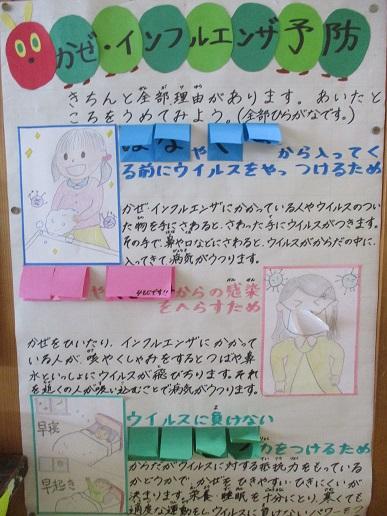 かぜ・インフルエンザ予防
きちんと全部理由があります。あいたと
ころをうめてみよう。(全部ひらがなです。)
はな や から入ってく
る前にウイルスをやっつけるため
かぜ・インフルエンザにかかっている人やウイルスのつい
た物を手にさわると、さわった手にウイルスがつきます。
その手で、鼻や口などにさわると、ウイルスがからだの中に、
入ってきて病気がうつります。
や からの感染
をへらすため
かぜをひいたり、インフルエンザにかかって
いる人が、咳やくしゃみをするとつばや鼻
水といっしょにウイルスが飛びちります。それ
を近くの人が吸い込むことで病気がうつります。
早寝
早起き
ウイルスに負けない
力をつけるため
からだがウイルスに対する抵抗力をもっている
かどうかで、かぜをひきやすい・ひきにくいが
決まります。栄養・睡眠を十分にとり、寒くても
適度な運動をし、ウイルスに負けないパワーを